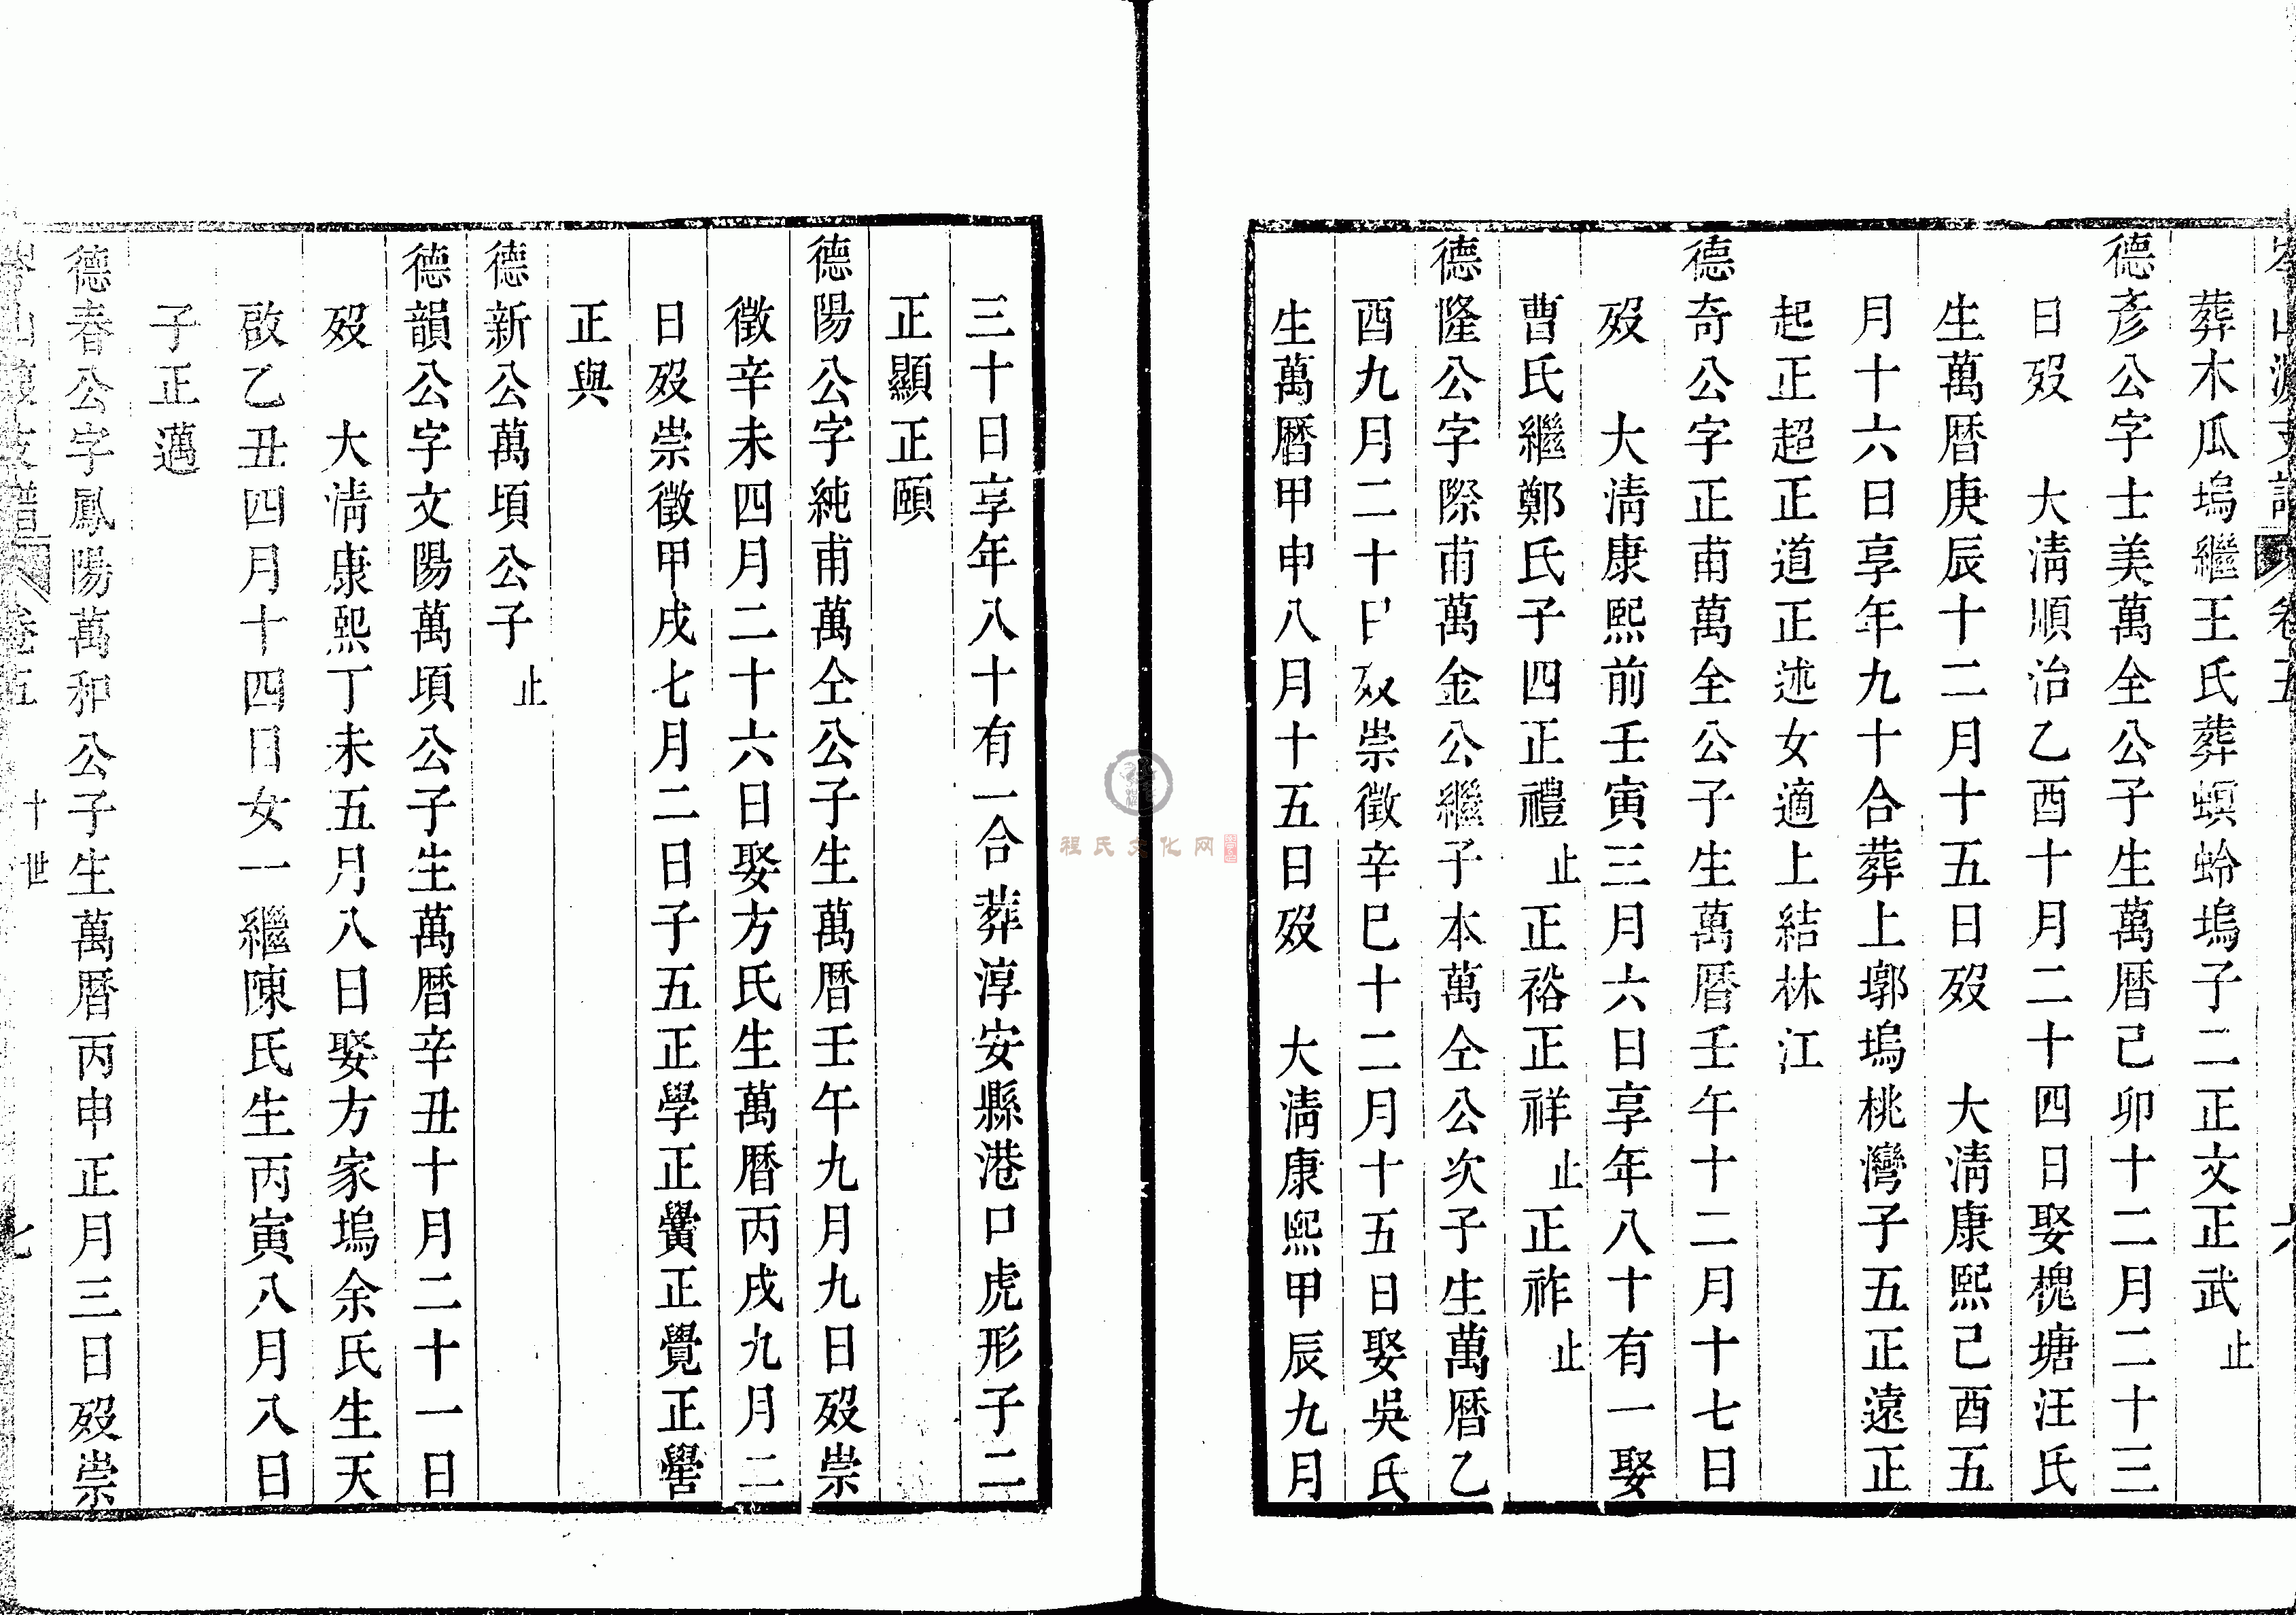 山 支譜 卷五 六
葬木瓜塢繼王氏葬螟蛉塢子二正文正武止
德彥公字士美萬全公子生萬曆己卯十二月二十三
日歿 大清順治乙酉十月二十四日娶槐塘汪氏
生萬曆庚辰十二月十五日歿 大清康熙己酉五
月十六日享年九十合葬上墎塢桃灣子五正遠正
起正超正道正述女適上結林江
德奇公字正甫萬全公子生萬曆壬午十二月十七日
歿 大清康熙前壬寅三月六日享年八十有一娶
曹氏繼鄭氏子四正禮止正裕正祥止正祚止
德隆公字際甫萬金公繼子本萬仝公次子生萬曆乙
酉九月二十日歿崇徵辛巳十二月十五日娶吳氏
生萬曆甲申八月十五日歿 大清康熙甲辰九月
三十日享年八十有一合葬淳安縣港口虎形子二
正顯正頤
德陽公字純甫萬仝公子生萬曆壬午九月九日歿崇
徵辛未四月二十六日娶方氏生萬曆丙戌九月二
日歿崇徵甲戌七月二日子五正學正黌正覺正譽
正與
德新公萬頃公子止
德韻公字文陽萬頃公子生萬曆辛丑十月二十一日
歿 大清康熙丁未五月八日娶方家塢余氏生天
啟乙丑四月十四日女一繼陳氏生丙寅八月八日
子正邁
德春公字鳳陽萬和公子生萬曆丙申正月三日歿崇
山 支譜 卷五 十世 七
程氏文化网